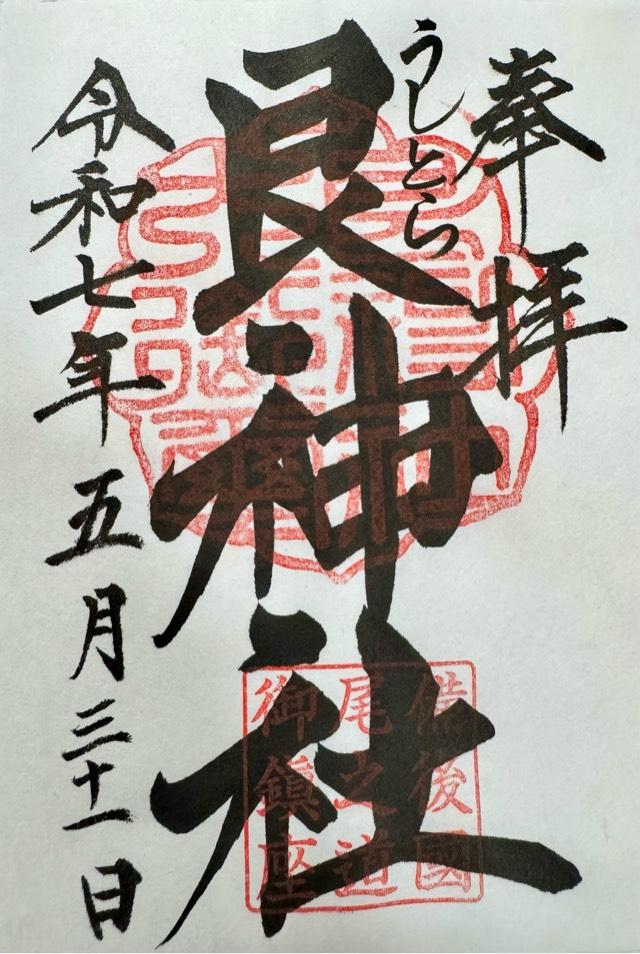 奉拝
うしとら
艮神社
令和七年五月三十一日
備後國
尾之道
御鎮座